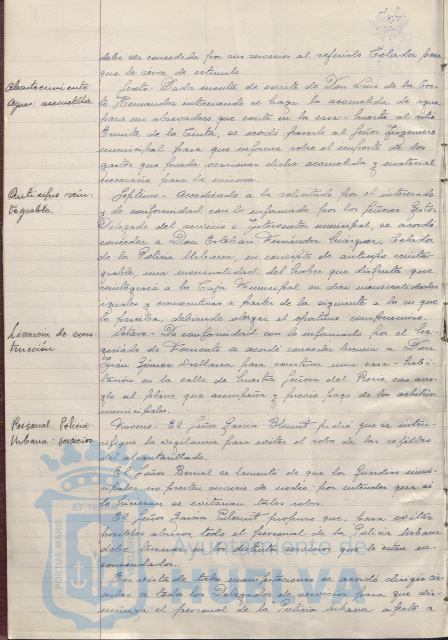 debe ser concedida por sus servicios al referido Celador para
que le sirva de estímulo.
Abastecimiento
Agua: acometida
Sexto: Dada cuenta de escrito de Don Luis de la Cor-
te Hernandez interesando se haga la acometida de agua
para un abrevadero que existe en la casa-huerta al sitio
Ermita de la Cinta, se acordó pasarlo al Señor Ingeniero
municipal para que informe sobre el importe de los
gastos que pueda ocasionar dicha acometida y material
necesario para la misma.
Anticipo rein-
tegrable.
Septimo. Accediendo a lo solicitado por el interesado
y de conformidad con lo informado por los Señores Gestor
Delegado del servicio e Interventor municipal, se acordó
conceder a Don Esteban Fernández Márquez, Celador
de la Policía Urbana, en concepto de anticipo reinte-
grable, una mensualidad del haber que disfruta que
reintegrará a la Caja Municipal en diez mensualidades
iguales y consecutivas a partir de la siguiente a la en que
lo perciba, debiendo otorgar el oportuno compromiso.
Licencia de cons-
trucción
Octavo. De conformidad con lo informado por el Ne-
gociado de Fomento se acordó conceder licencia a Don
Juan Gómez Orellana para construir una casa-habi-
tación en la calle de Nuestra Señora del Rocio, con arre-
glo al plano que acompaña y previo pago de los arbitrios
municipales.
Personal Policía
Urbana: servicios
Noveno: El Señor García Blount pidió que se inten-
sifique la vigilancia para evitar el robo de las rejillas
del alcantarillado.
El Señor Bernal se lamentó de que los Guardias muni-
cipales no presten servicio de noche, por entender que si
lo hicieran se evitarían tales robos.
El Señor García Blount propuso que, para evitar
posibles abusos, todo el personal de la Policía Urbana
debe turnar en los distintos servicios que le estan en-
comendados.
En vista de tales manifestaciones se acordó dirigir cir-
cular a todos los Delegados de servicios para que dis-
minuya el personal de la Policía Urbana afecto a
PORTUS MARIS
ET TERRAE
Ayuntamiento de
HUELVA